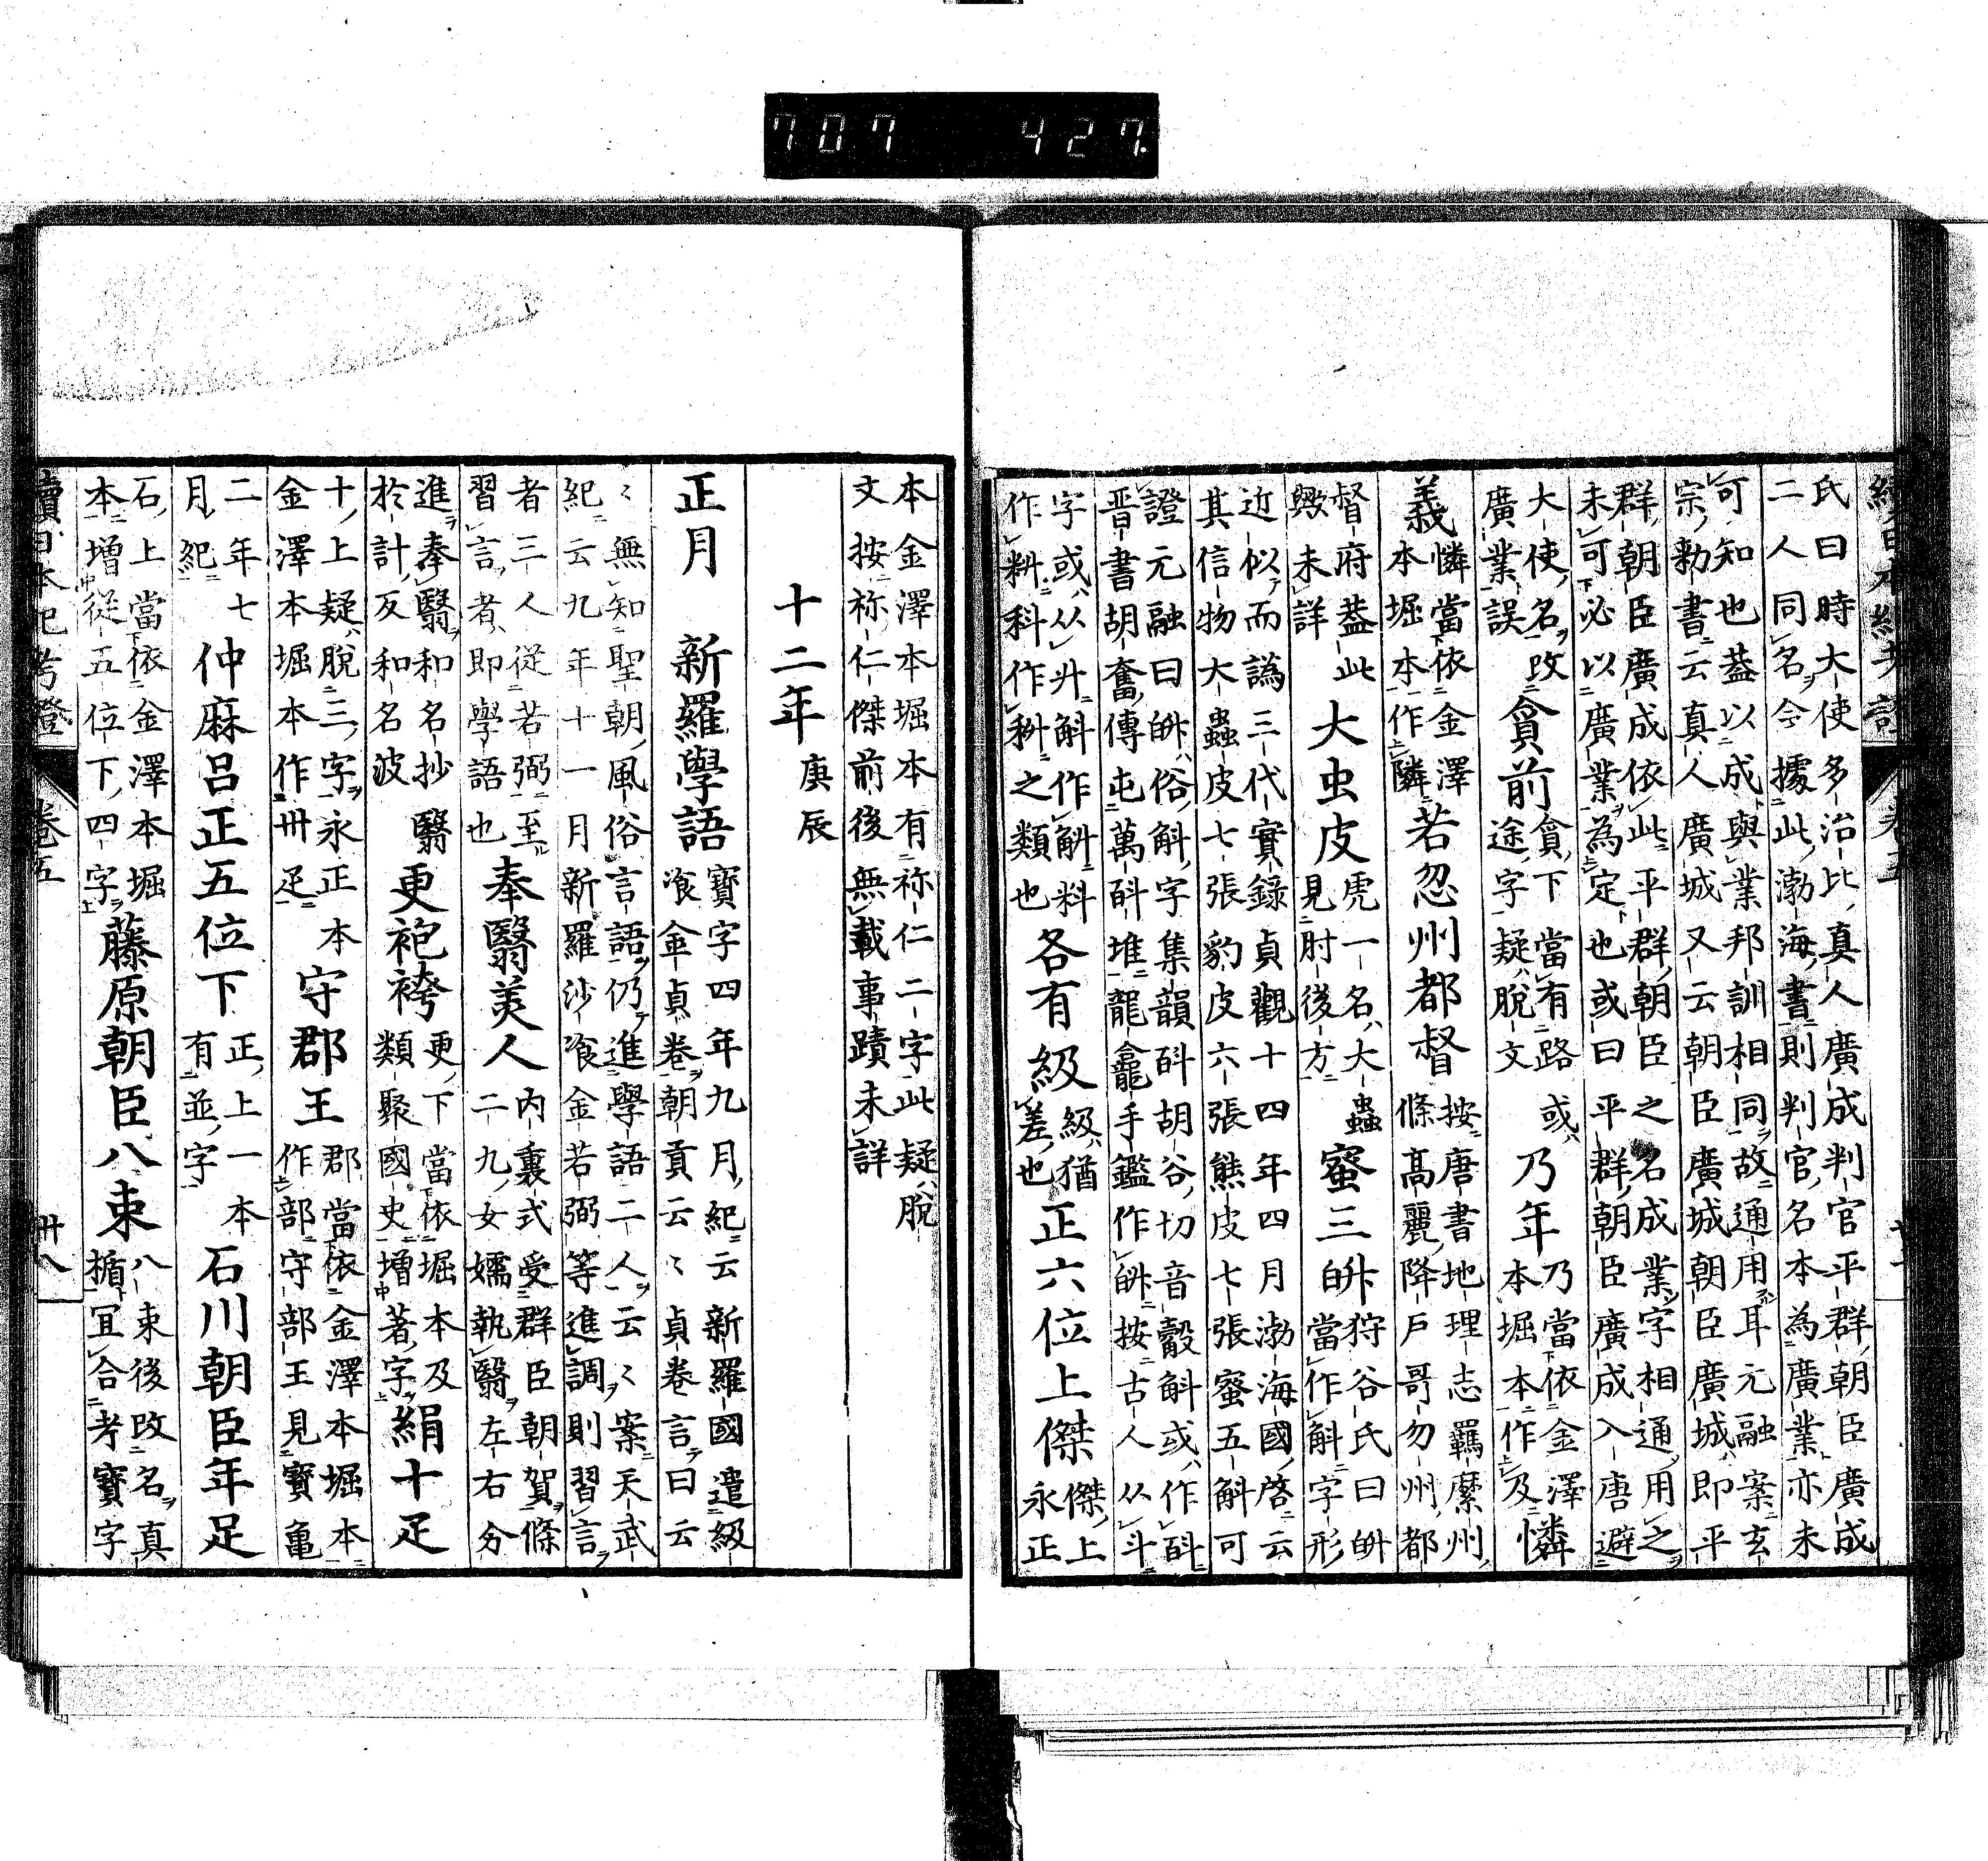 707 427
氏曰時大使多治比真人廣成判官平群朝臣廣成
二人同名今據此渤海書則判官名本為廣業亦未
可知也蓋以成與業邦訓相同故通用耳元融案玄
宗勅書云真人廣城又云朝臣廣城朝臣廣城即平
群朝臣廣成依此平群朝臣之名成業字相通用之
未可必以廣業為定也或曰平群朝臣廣成入唐避
大使名改
廣業誤
貪前
貪下當有路
途字疑脫文
或
乃年
乃當依金澤
本堀本作及
憐
義
憐當依金澤
本堀本作隣
若忽州都督
按唐書地理志羈縻州
條髙麗降戶哥勿州都
督府蓋此
歟未詳
大虫皮
虎一名大蟲
見肘後方
蜜三䤗
狩谷氏曰䤗
當作斛字形
近似而譌三代實錄貞觀十四年四月渤海國啓云
其信物大蟲皮七張豹皮六張熊皮七張蜜五斛可
證元融曰䤗俗斛字集韻㪶胡谷切音縠斛或作㪶
晋書胡奮傳屯萬㪶堆龍龕手鑑作䤗按古人从斗
字或从升斛作斛料
作料科作科之類也
各有級
級猶
差也
正六位上傑
傑上
永正
本金澤本堀本有祢仁二字此疑脫
文按祢仁傑前後無載事蹟未詳
十二年
庚辰
正月
新羅學語
寶字四年九月紀云新羅國遣級
飡金貞卷朝貢云〻貞卷言曰云
〻無知聖朝風俗言語仍進學語二人云〻案天武
紀云九年十一月新羅沙飡金若弼等進調則習言
者三人從若弼至
習言者即學語也
奉翳美人
内裏式受群臣朝賀條
二九女嬬執翳左右分
進奉翳和名抄翳
於計反和名波
更袍袴
更下當依堀本及
類聚國史增著字
絹十疋
十上疑脫三字永正本
金澤本堀本作卅疋
守郡王
郡當依金澤本堀本
作部守部王見寶亀
二年七
月紀
仲麻呂正五位下
正上一本
有並字
石川朝臣年足
石上當依金澤本堀
本增從五位下四字
藤原朝臣八束
八束後改名真
楯宜合考寶字
續日本紀考證
卷五
卅八